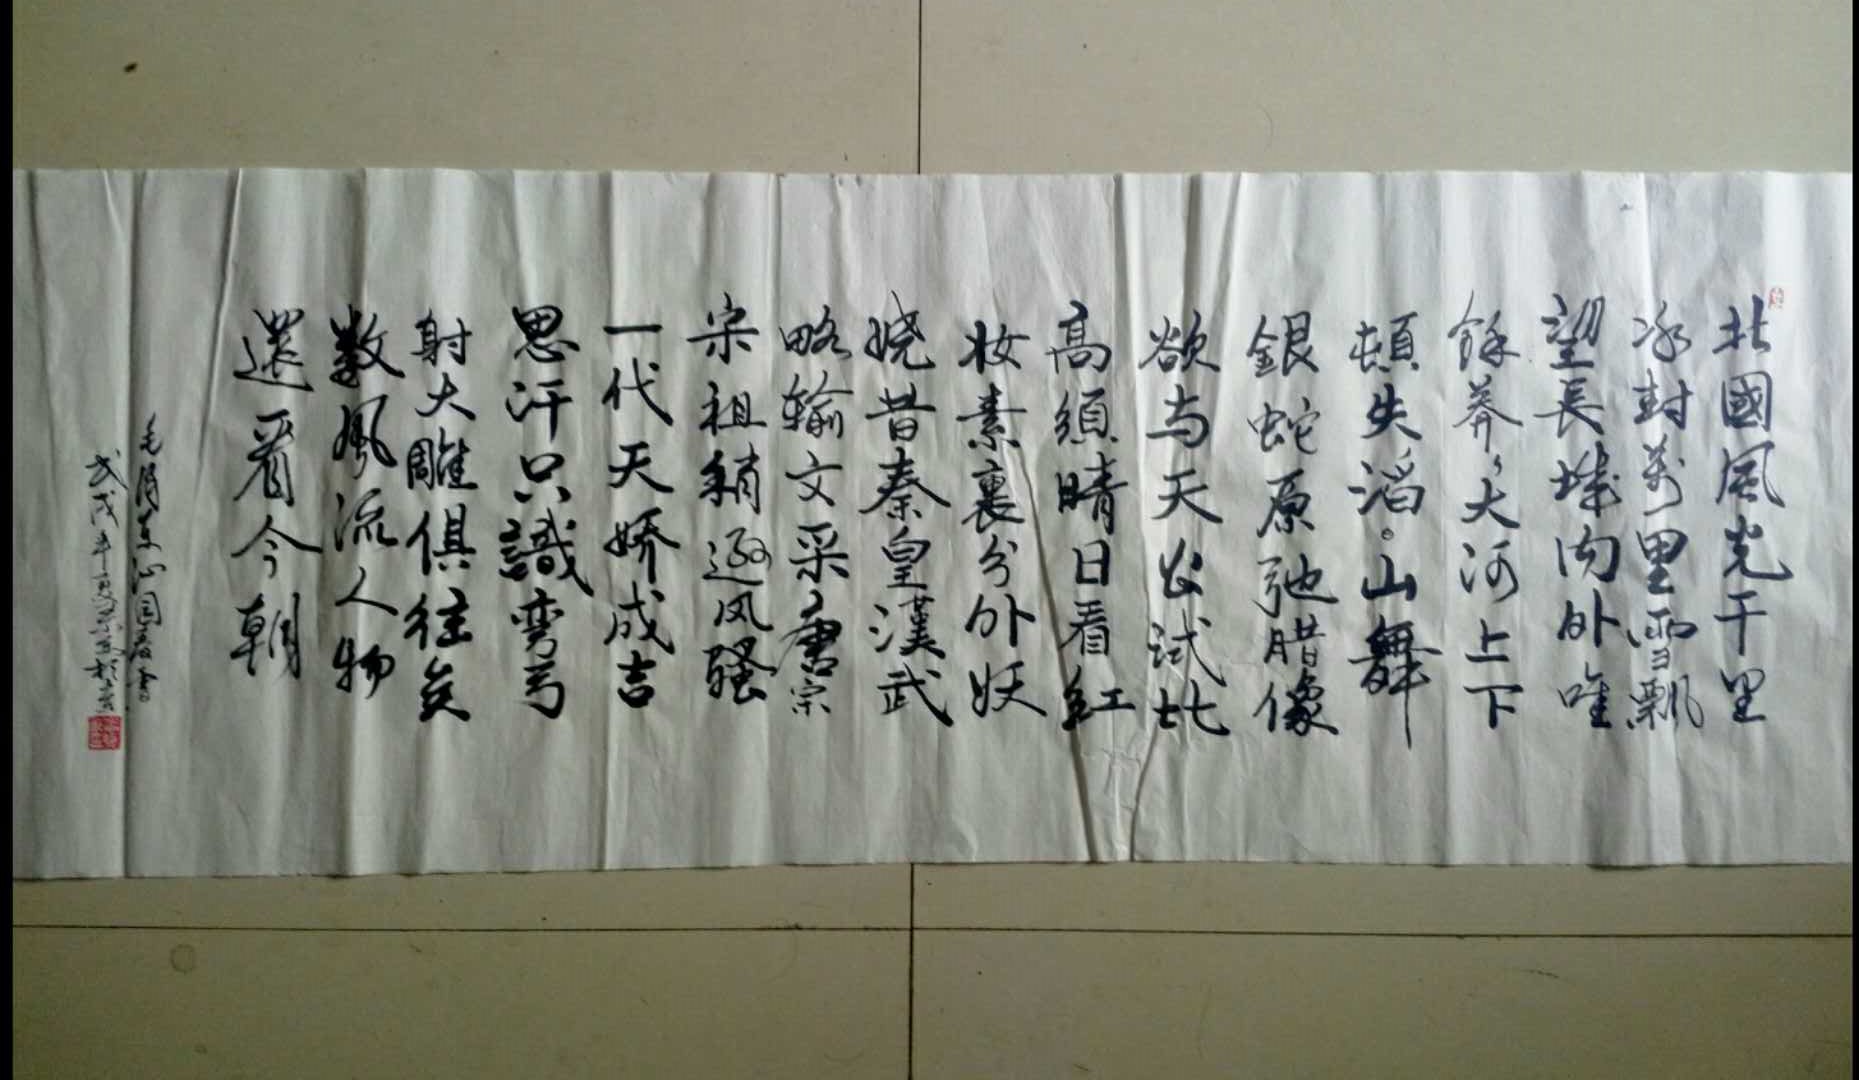 北國風光千里
冰封萬里雪飄
望長城内外唯
餘莽々大河上下
頓失滔。山舞
銀蛇原弛腊像
欲与天公試比
高須晴日看紅
妆素裹分外妖
娆昔秦皇漢武
略输文采唐宗
宋祖稍逊风騷
一代天娇成吉
思汗只識弯弓
射大雕俱往矣
數風流人物
還看今朝
毛泽东沁园春雪
戊戌年夏